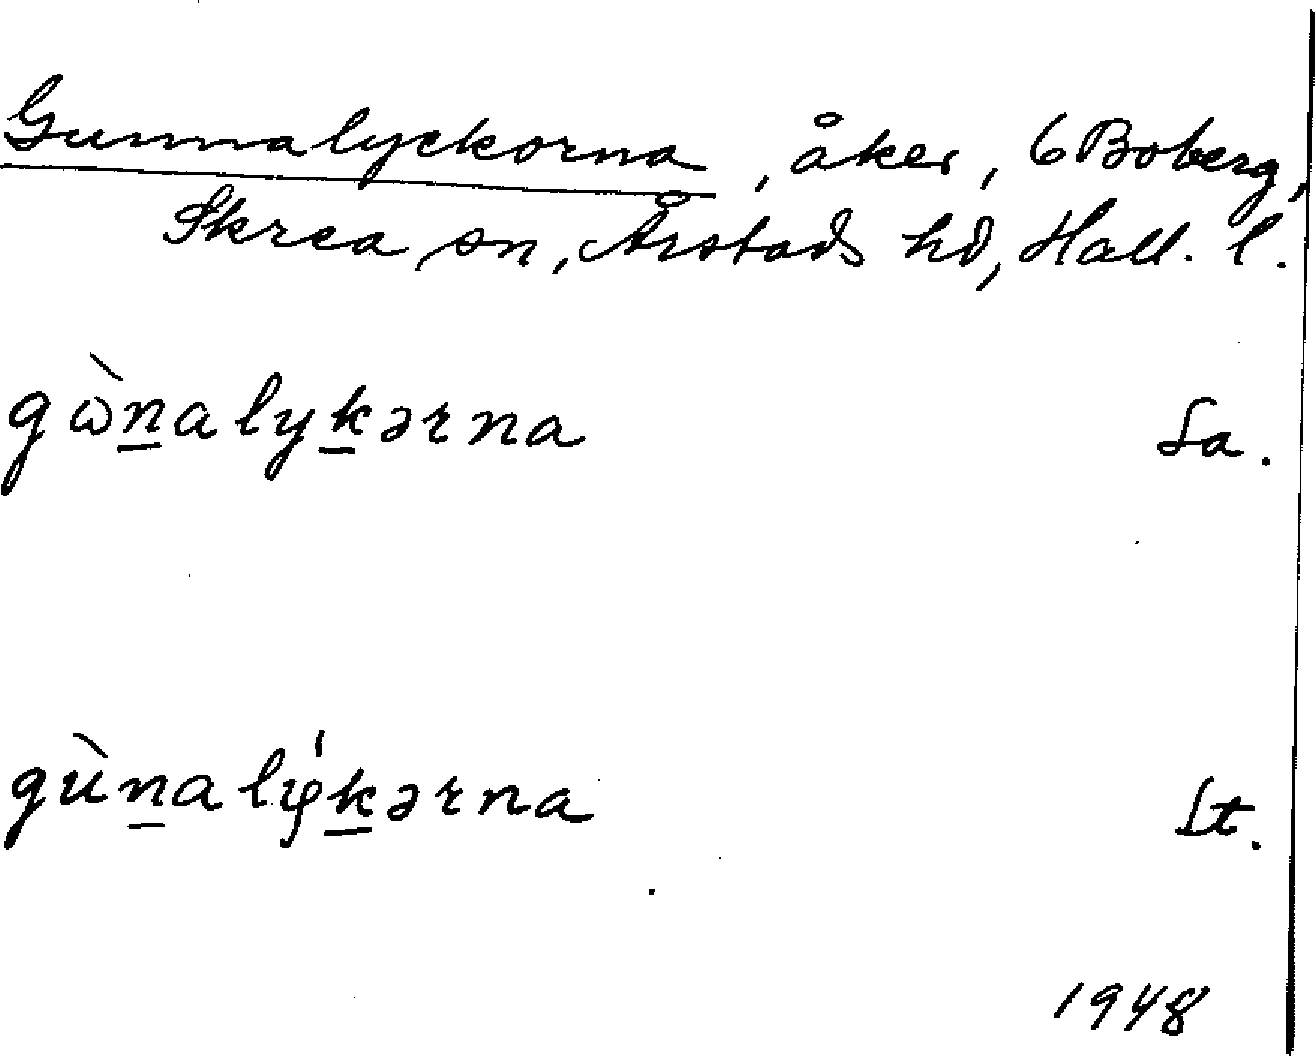 Gunnalyckorna, åker, 6 Boberg,
Skrea sn, Årstads hd, Hall. l.
gὼn̲alyk̲ərna Sa.
gùn̲alýk̲ərna St.
1948